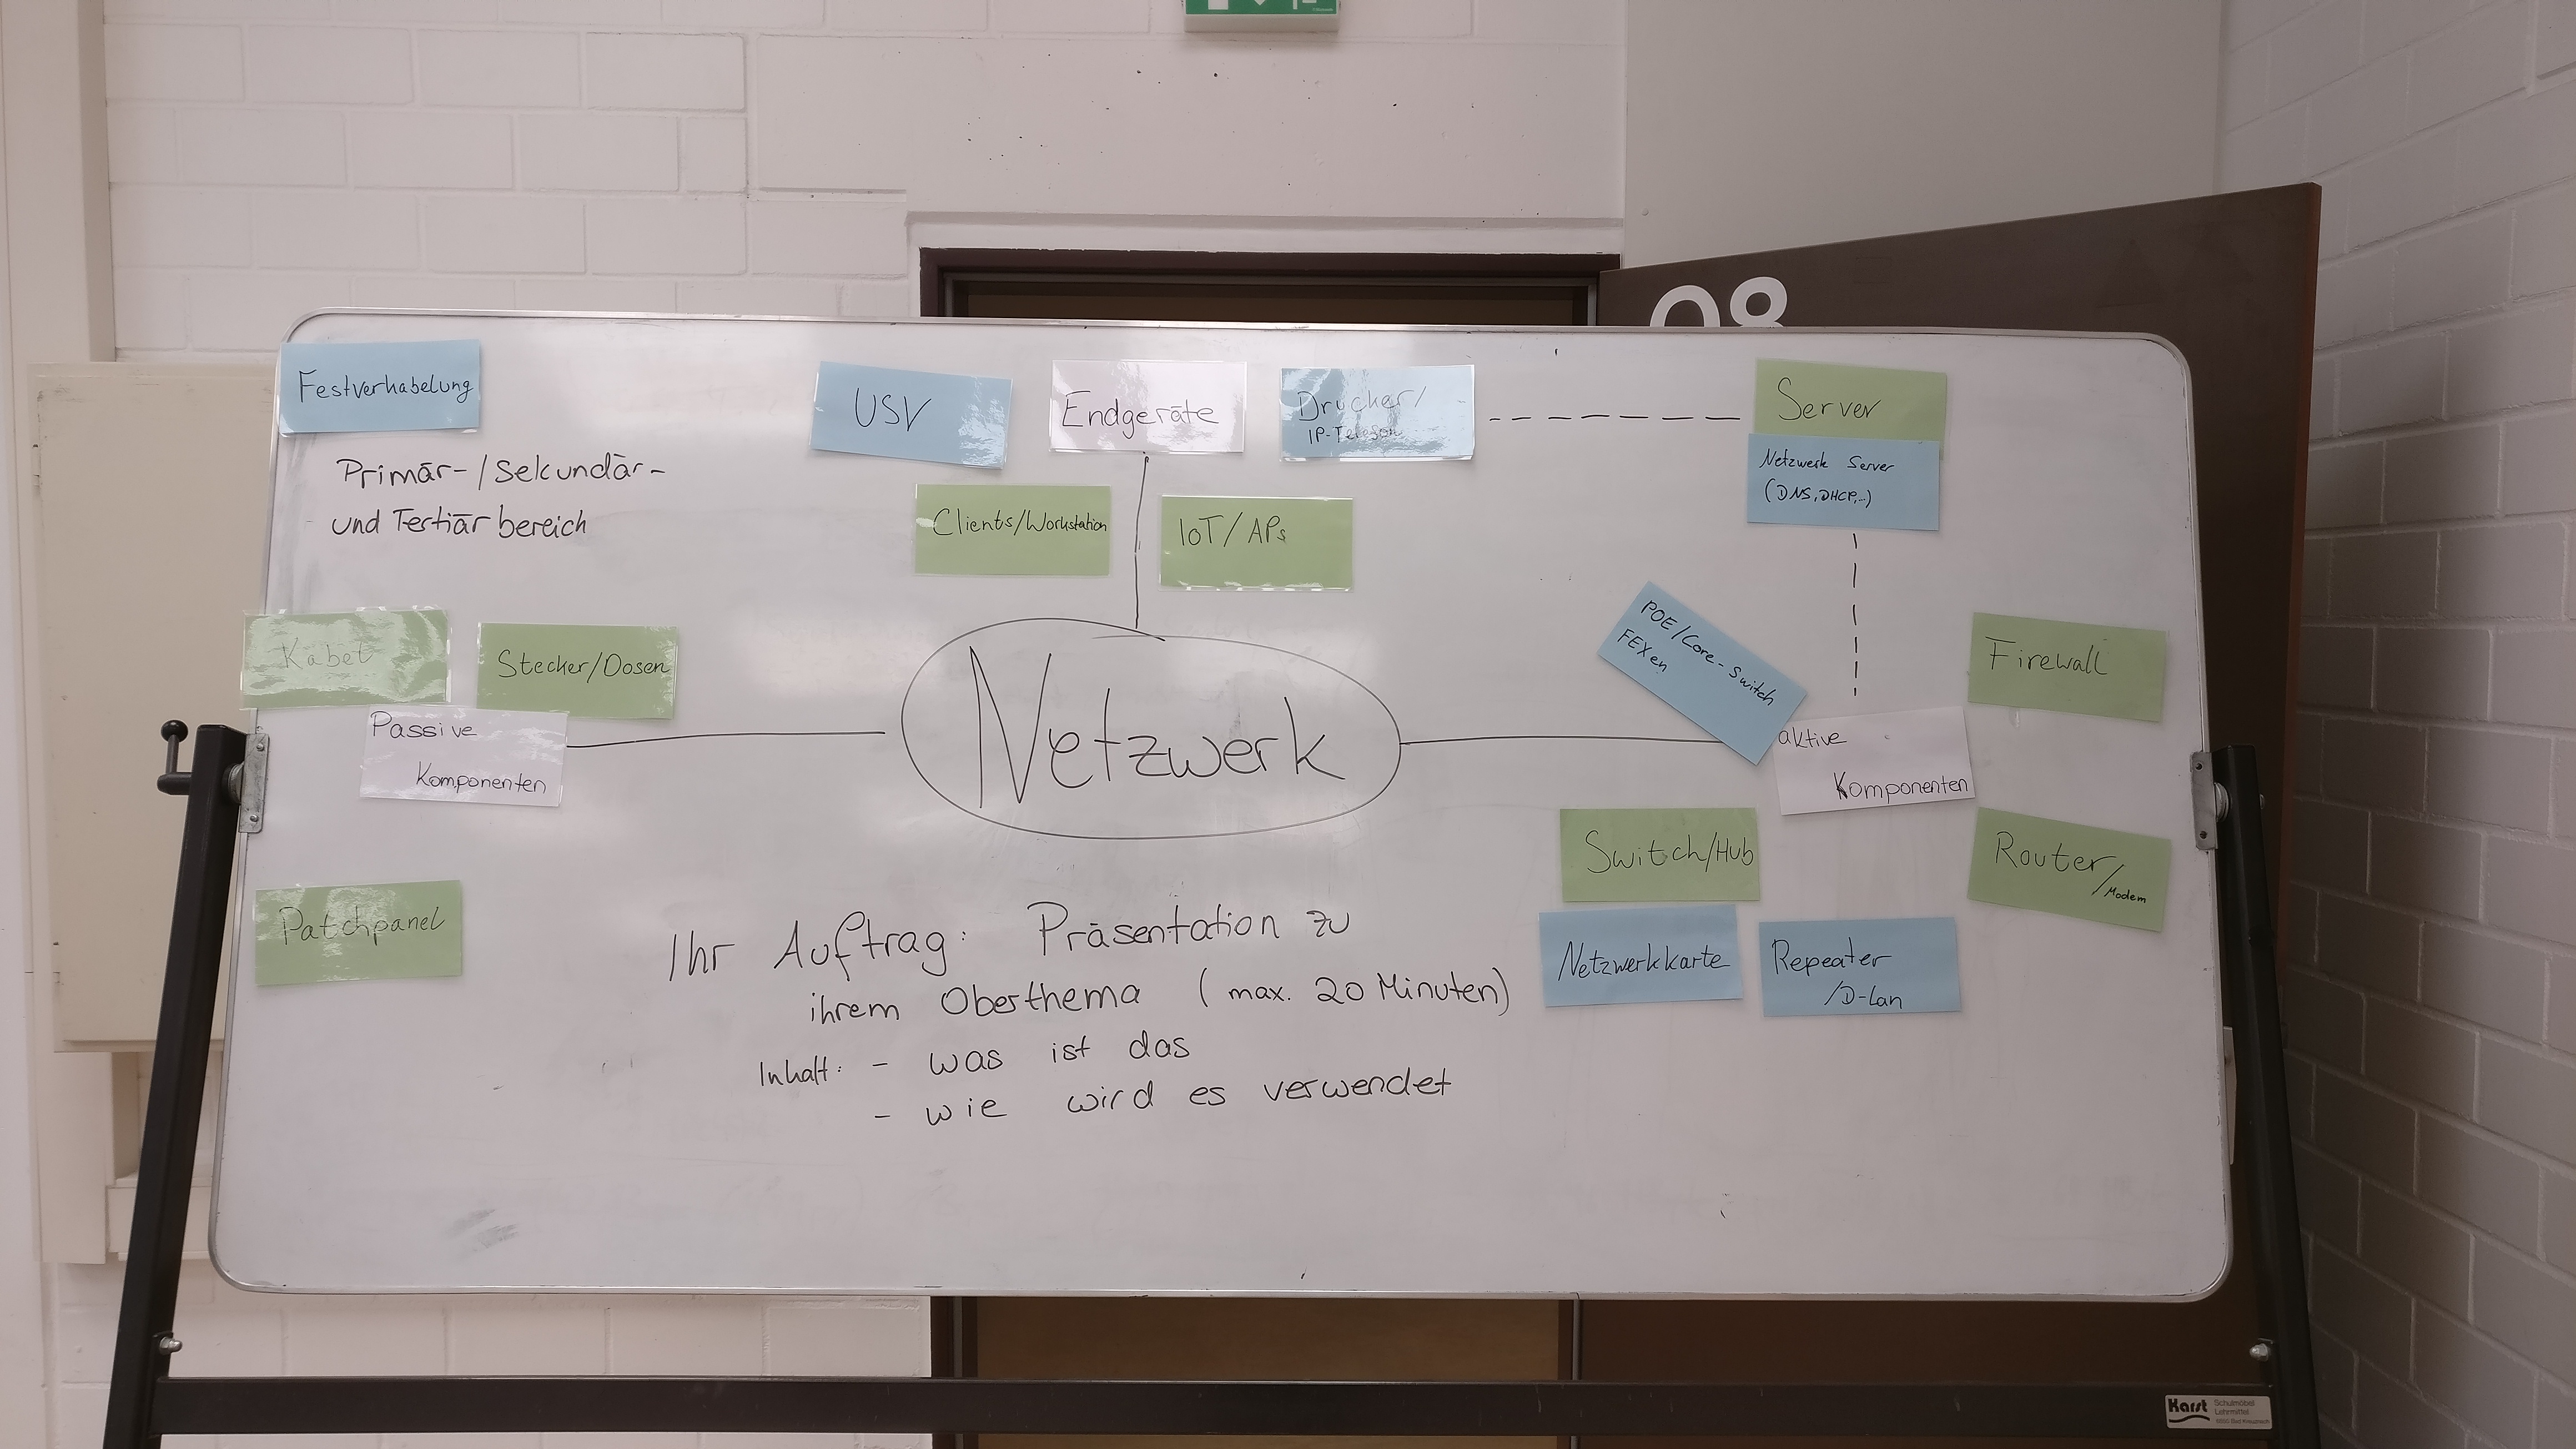 08
Festverkabelung
Primär-/Sekundär-
und Tertiärbereich
USV
Endgeräte
Drucker/
IP-Telefon
Server
Netzwerk Server
(DNS, DHCP,..)
Clients/Workstation
IoT/APs
Kabel
Stecker/Dosen
Passive
Komponenten
Netzwerk
POE/Core-Switch
FEXen
Firewall
aktive
Komponenten
Switch/Hub
Router/Modem
Patchpanel
Netzwerkkarte
Repeater
/D-Lan
Ihr Auftrag: Präsentation zu
ihrem Oberthema (max. 20 Minuten)
Inhalt: - was ist das
- wie wird es verwendet
Karst
Schulmöbel
Lehrmittel